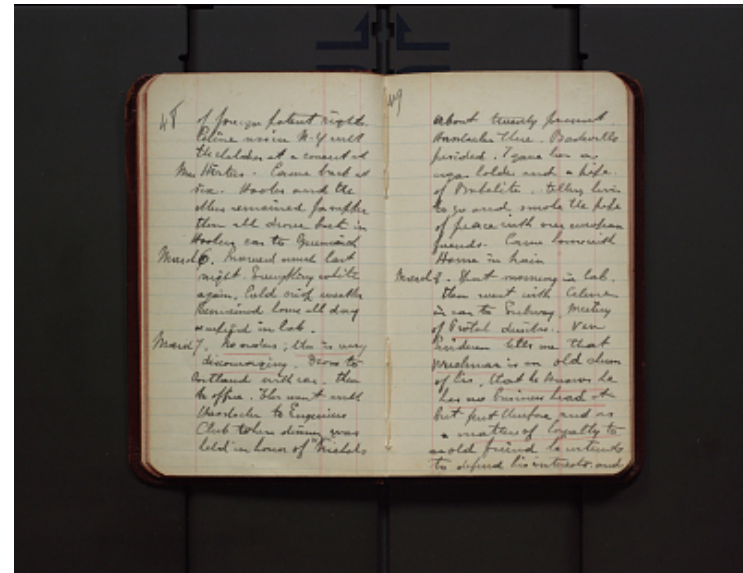 48
of foreign patent rights.
Celine was in N.Y. with
the children at a concert at
Mrs Herter's. Came back at
six. Hooker and the
others remained for supper
then all drove back in
Hookers car to Greenwich
March 6. Snowed much last
night. Everything white
again. Cold crisp weather
Remained home all day
worked in lab.
March 7. No orders; this is very
discouraging. Drove to
Cortland with car, then
to office. Then went with
to Engineers
Club where dinner was
held in honor of Nichols
49
about twenty present
there. Baskerville
presided. I gave him a
cigar holder and a pipe
of Bakelite, telling him
to go and smoke the pipe
of peace with our european
friends. Came home with
Hama in train
March 8. Spent morning in lab.
Then went with Celine
in car to Subway. Meeting
of
tells me that
is an old chum
of his, that he knows he
has no business head at
but
a matter of loyalty to
an old friend he intends
to defend his interests and